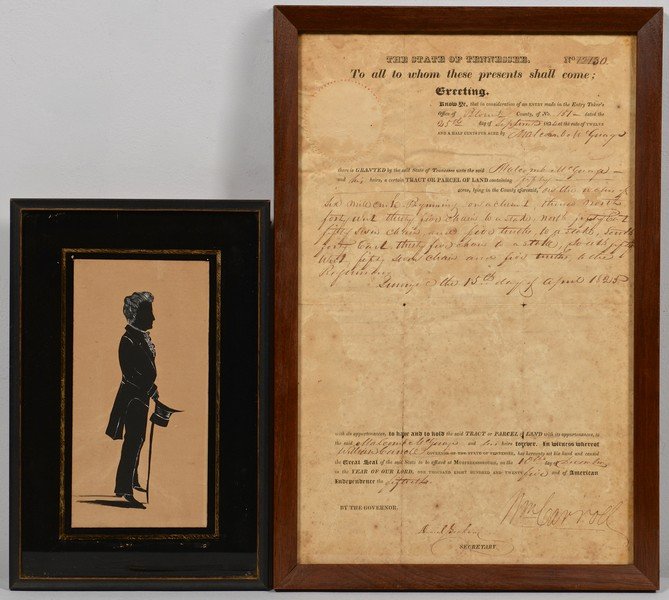 THE STATE OF TENNESSEE. No
To all to whom these presents shall come;
Greeting.
Know Ye, that in consideration of an ENTRY made in the Entry Taker's
Office of Blount County, of No. dated the
25th day of September at the rate of TWELVE
AND A HALF CENTS PER ACRE by
there is GRANTED by the said State of Tennessee unto the said
and his heirs, a certain TRACT OR PARCEL OF LAND containing
acres, lying in the County aforesaid, on the waters of
Six mile creek Beginning on a thence North
forty West thirty five chains to a stake, North fifty East
fifty seven chains and five to a stake, South
forty East thirty five chains to a stake, South fifty
West fifty seven chains and five to the
Beginning
the 15th day of April 1825
with its appurtenances, to have and to hold the said TRACT or PARCEL OF LAND with its appurtenances, to
the said and his heirs forever. In witness whereof
William Carroll GOVERNOR OF THE STATE OF TENNESSEE, has hereunto set his hand and caused the
Great Seal of the said State to be affixed at MURFREESBOROUGH, on the 10th day of December
in the YEAR OF OUR LORD, ONE THOUSAND EIGHT HUNDRED AND TWENTY five and of American
Independence the fiftieth.
BY THE GOVERNOR.
Wm Carroll
Daniel Graham
SECRETARY.